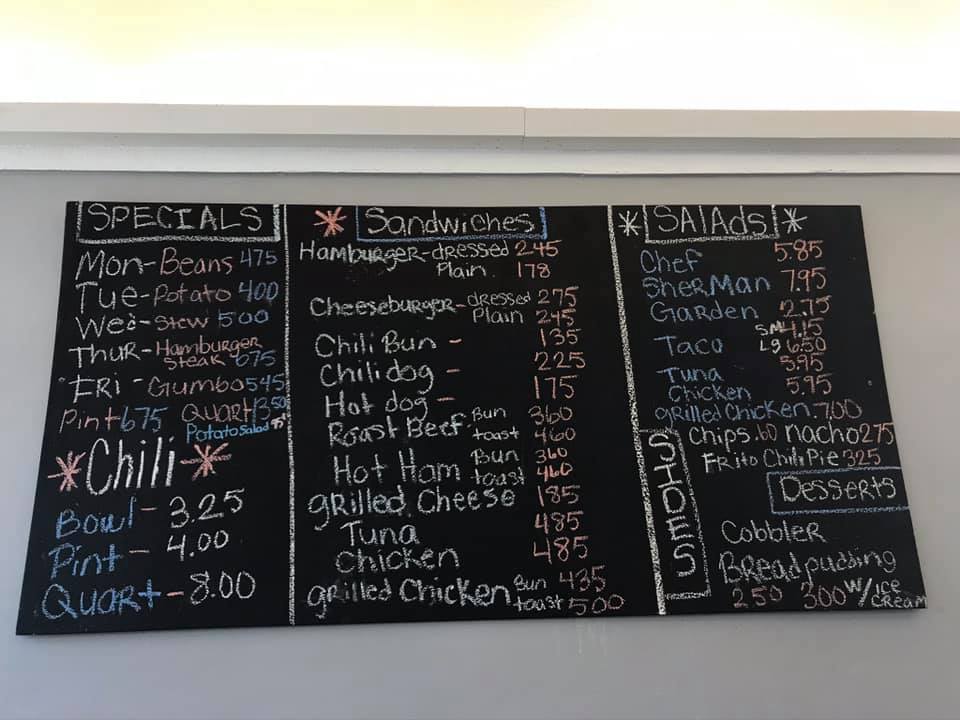 SPECIALS
Mon-Beans 475
Tue-Potato 400
Wed-Stew 500
Thur-Hamburger
Steak 675
FRI-Gumbo 545
Pint 675 Quart 13.50
Potato Salad
*Chili*
Bowl- 3.25
Pint- 4.00
Quart- 8.00
* Sandwiches
Hamburger-dressed 245
Plain. 178
Cheeseburger-dressed 275
Plain 245
Chili Bun - 135
Chilidog - 225
Hot dog - 175
Roast Beef- Bun 360
toast 460
Hot Ham Bun 360
toast 460
grilled Cheese 185
Tuna 485
Chicken 485
grilled Chicken Bun 435
toast 500
* SAlAds *
Chef 5.85
SherMan 7.95
Garden 2.75
Taco SM 4.15
LG 6.50
Tuna 5.95
Chicken 5.95
grilled Chicken 7.00
SIDES
Chips .60 nacho 275
Frito Chili Pie 325
Desserts
Cobbler
Bread pudding
2.50 300 W/ICE
CREAM